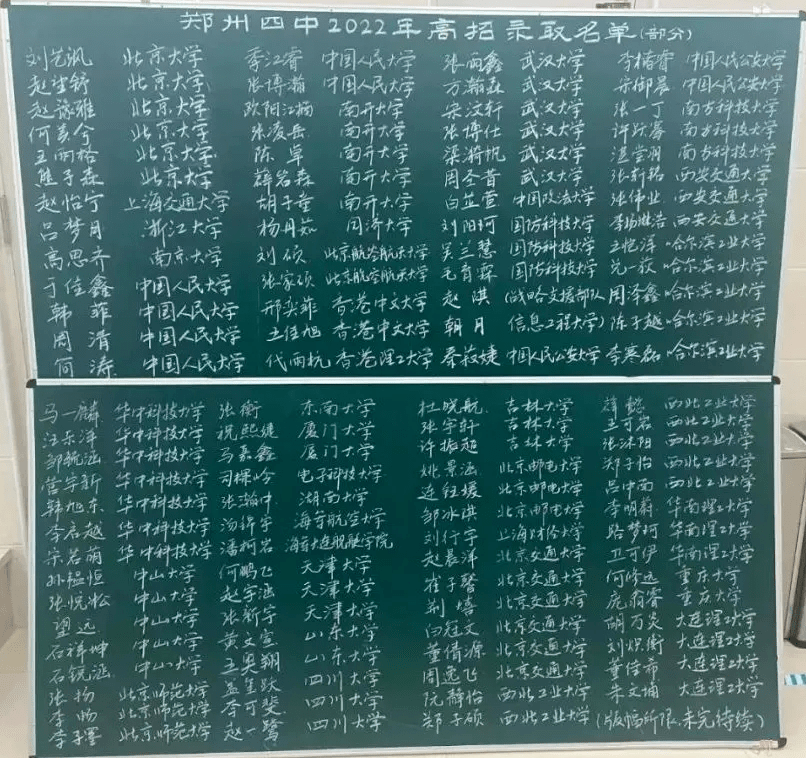 郑州四中2022年高招录取名单(部分)
刘艺沨 北京大学 季江睿 中国人民大学 张雨鑫 武汉大学 李椿睿 中国人民公安大学
赵堂舒 北京大学 张博瀚 中国人民大学 万瀚森 武汉大学 宋御晨 中国人民公安大学
赵豫雅 北京大学 欧阳江楠 南开大学 宋汶轩 武汉大学 张一丁 南方科技大学
何嘉今 北京大学 张凌岳 南开大学 张博仕 武汉大学 许跃骞 南方科技大学
王雨格 北京大学 陈卓 南开大学 梁漪帆 武汉大学 南方科技大学
熊子森 北京大学 薛岩森 南开大学 周圣昔 武汉大学 西安交通大学
赵怡宁 上海交通大学 胡子童 南开大学 白芷萱 中国政法大学 张伟业 西安交通大学
吕梦月 浙江大学 杨丹茹 同济大学 刘阳珂 国防科技大学 李杨浩浩 西安交通大学
高思齐 南京大学 刘硕 北京航空航天大学 吴兰慧 国防科技大学 王恺洋 哈尔滨工业大学
于佳鑫 中国人民大学 张家硕 北京航空航天大学 毛育霖 国防科技大学 元荻 哈尔滨工业大学
韩菲 中国人民大学 邢奕菲 香港中文大学 赵淇 (战略支援部队 周泽鑫 哈尔滨工业大学
周清 中国人民大学 王佳旭 香港中文大学 朝月 信息工程大学) 陈子越 哈尔滨工业大学
简涛 中国人民大学 代雨杭 香港理工大学 秦菽婕 中国人民公安大学 李寒磊 哈尔滨工业大学
马一麟 华中科技大学 张衡 东南大学 杜晓航 吉林大学 薛懿 西北工业大学
汪乐洋 华中科技大学 祝熙婕 厦门大学 张宇轩 吉林大学 王可岩 西北工业大学
邹毓涵 华中科技大学 马嘉鑫 厦门大学 许振超 吉林大学 张沐阳 西北工业大学
营宇新 华中科技大学 司棵吟 电子科技大学 姚景涵 北京邮电大学 郑子怡 西北工业大学
韩旭东 华中科技大学 张瀚中 湖南大学 连钰媛 北京邮电大学 吕中南 西北工业大学
李启越 华中科技大学 汤锦宇 海军航空大学 邹冰淇 北京邮电大学 李明蔚 华南理工大学
宋若萌 华中科技大学 潘柯岩 海军大连舰艇学院 刘行宇 上海财经大学 路梦珂 华南理工大学
孙韫恒 中山大学 何鹏飞 天津大学 赵晨洋 北京交通大学 卫可伊 华南理工大学
张悦淞 中山大学 赵宇涵 天津大学 崔子馨 北京交通大学 何修远 重庆大学
望远 中山大学 张新宇 天津大学 荆熺 北京交通大学 庞翕睿 重庆大学
石祥坤 中山大学 黄文宣 山东大学 闫冠文 北京交通大学 胡万炎 大连理工大学
石锐涵 中山大学 王奥翔 山东大学 董倩源 北京交通大学 刘炽衡 大连理工大学
张杨 北京师范大学 孟星跃 四川大学 周逸飞 北京交通大学 董佳希 大连理工大学
李畅 北京师范大学 李可斐 四川大学 阮静怡 西北工业大学 朱文埔 大连理工大学
李子墨 北京师范大学 赵一鹭 四川大学 郑子硕 西北工业大学 (版幅所限,未完待续)